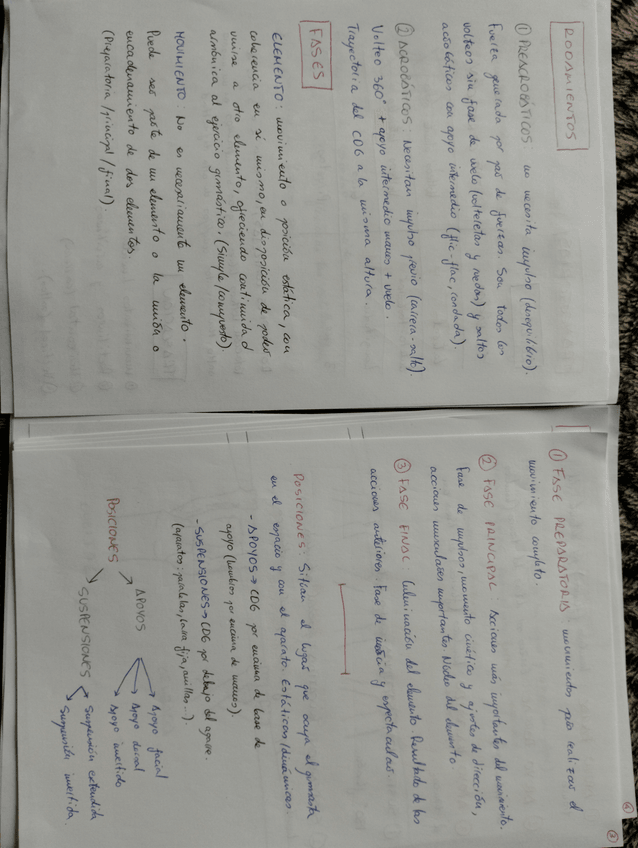 RODAMIENTOS
① PREACROBÁTICOS: no necesita impulso (desequilibrio).
Fuerza generada por par de fuerzas. Son todos los
volteos sin fase de vuelo (volteretas y ruedas) y saltos
acrobáticos con apoyo intermedio (flic-flac, rondada).
② ACROBÁTICOS: Necesitan impulso previo (carrera-salto).
Volteo 360° + apoyo intermedio manos + vuelo.
Trayectoria del CDG a la misma altura.
FASES
ELEMENTO: movimiento o posición estática, con
coherencia en sí mismo, en disposición de poder
unirse a otro elemento, ofreciendo continuidad
armónica al ejercicio gimnástico. (Simple/compuesto).
MOVIMIENTO: No es necesariamente un elemento.
Puede ser parte de un elemento o la unión o
encadenamiento de dos elementos.
(Preparatoria/principal/final).
③
① FASE PREPARATORIA: movimientos para realizar el
movimiento completo.
② FASE PRINCIPAL: Acciones más importantes del movimiento.
Fase de impulsos, momento cinético y ajustes de dirección,
acciones musculares importantes. Núcleo del elemento.
③ FASE FINAL: Culminación del elemento. Resultado de las
acciones anteriores. Fase de inercia y espectacular.
POSICIONES: Sitúan el lugar que ocupa el gimnasta
en el espacio y con el aparato. Estáticas/dinámicas.
- APOYOS → CDG por encima de base de
apoyo (hombros por encima de manos).
- SUSPENSIONES → CDG por debajo del agarre.
(aparatos: paralelas, barra fija, anillas...).
POSICIONES
APOYOS
Apoyo facial
Apoyo dorsal
Apoyo invertido
SUSPENSIONES
Suspensión extendida
Suspensión invertida